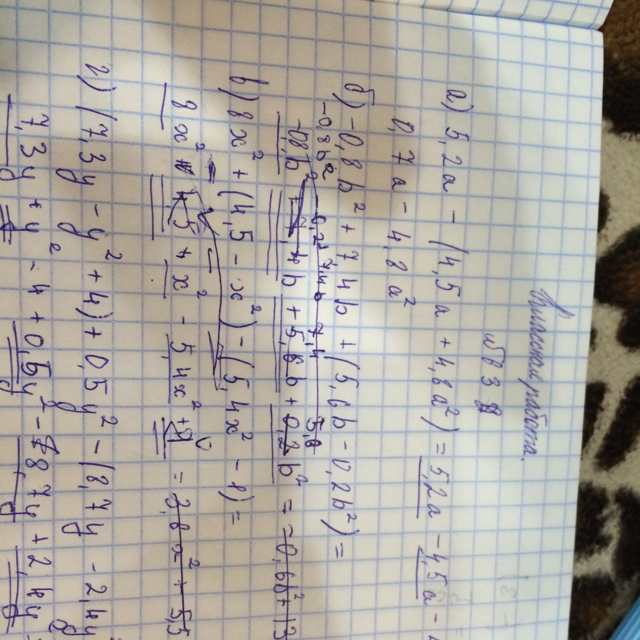 Классная работа.
№ 3
а) 5,2a - (4,5a + 4,8a²) = 5,2a - 4,5a -
0,7a - 4,8a²
б) -0,8b² + 7,4b + (5,6b - 0,2b²) =
= -0,6b² + 13
в) 8x² + (4,5 - x²) - (5,4x² - 1) =
8x² + 4,5 + x² - 5,4x² + 1 = 2,6x² + 5,5
г) (7,3y - y² + 4) + 0,5y² - (8,7y - 2,4y
7,3y + y² - 4 + 0,5y² - 8,7y + 2,4y